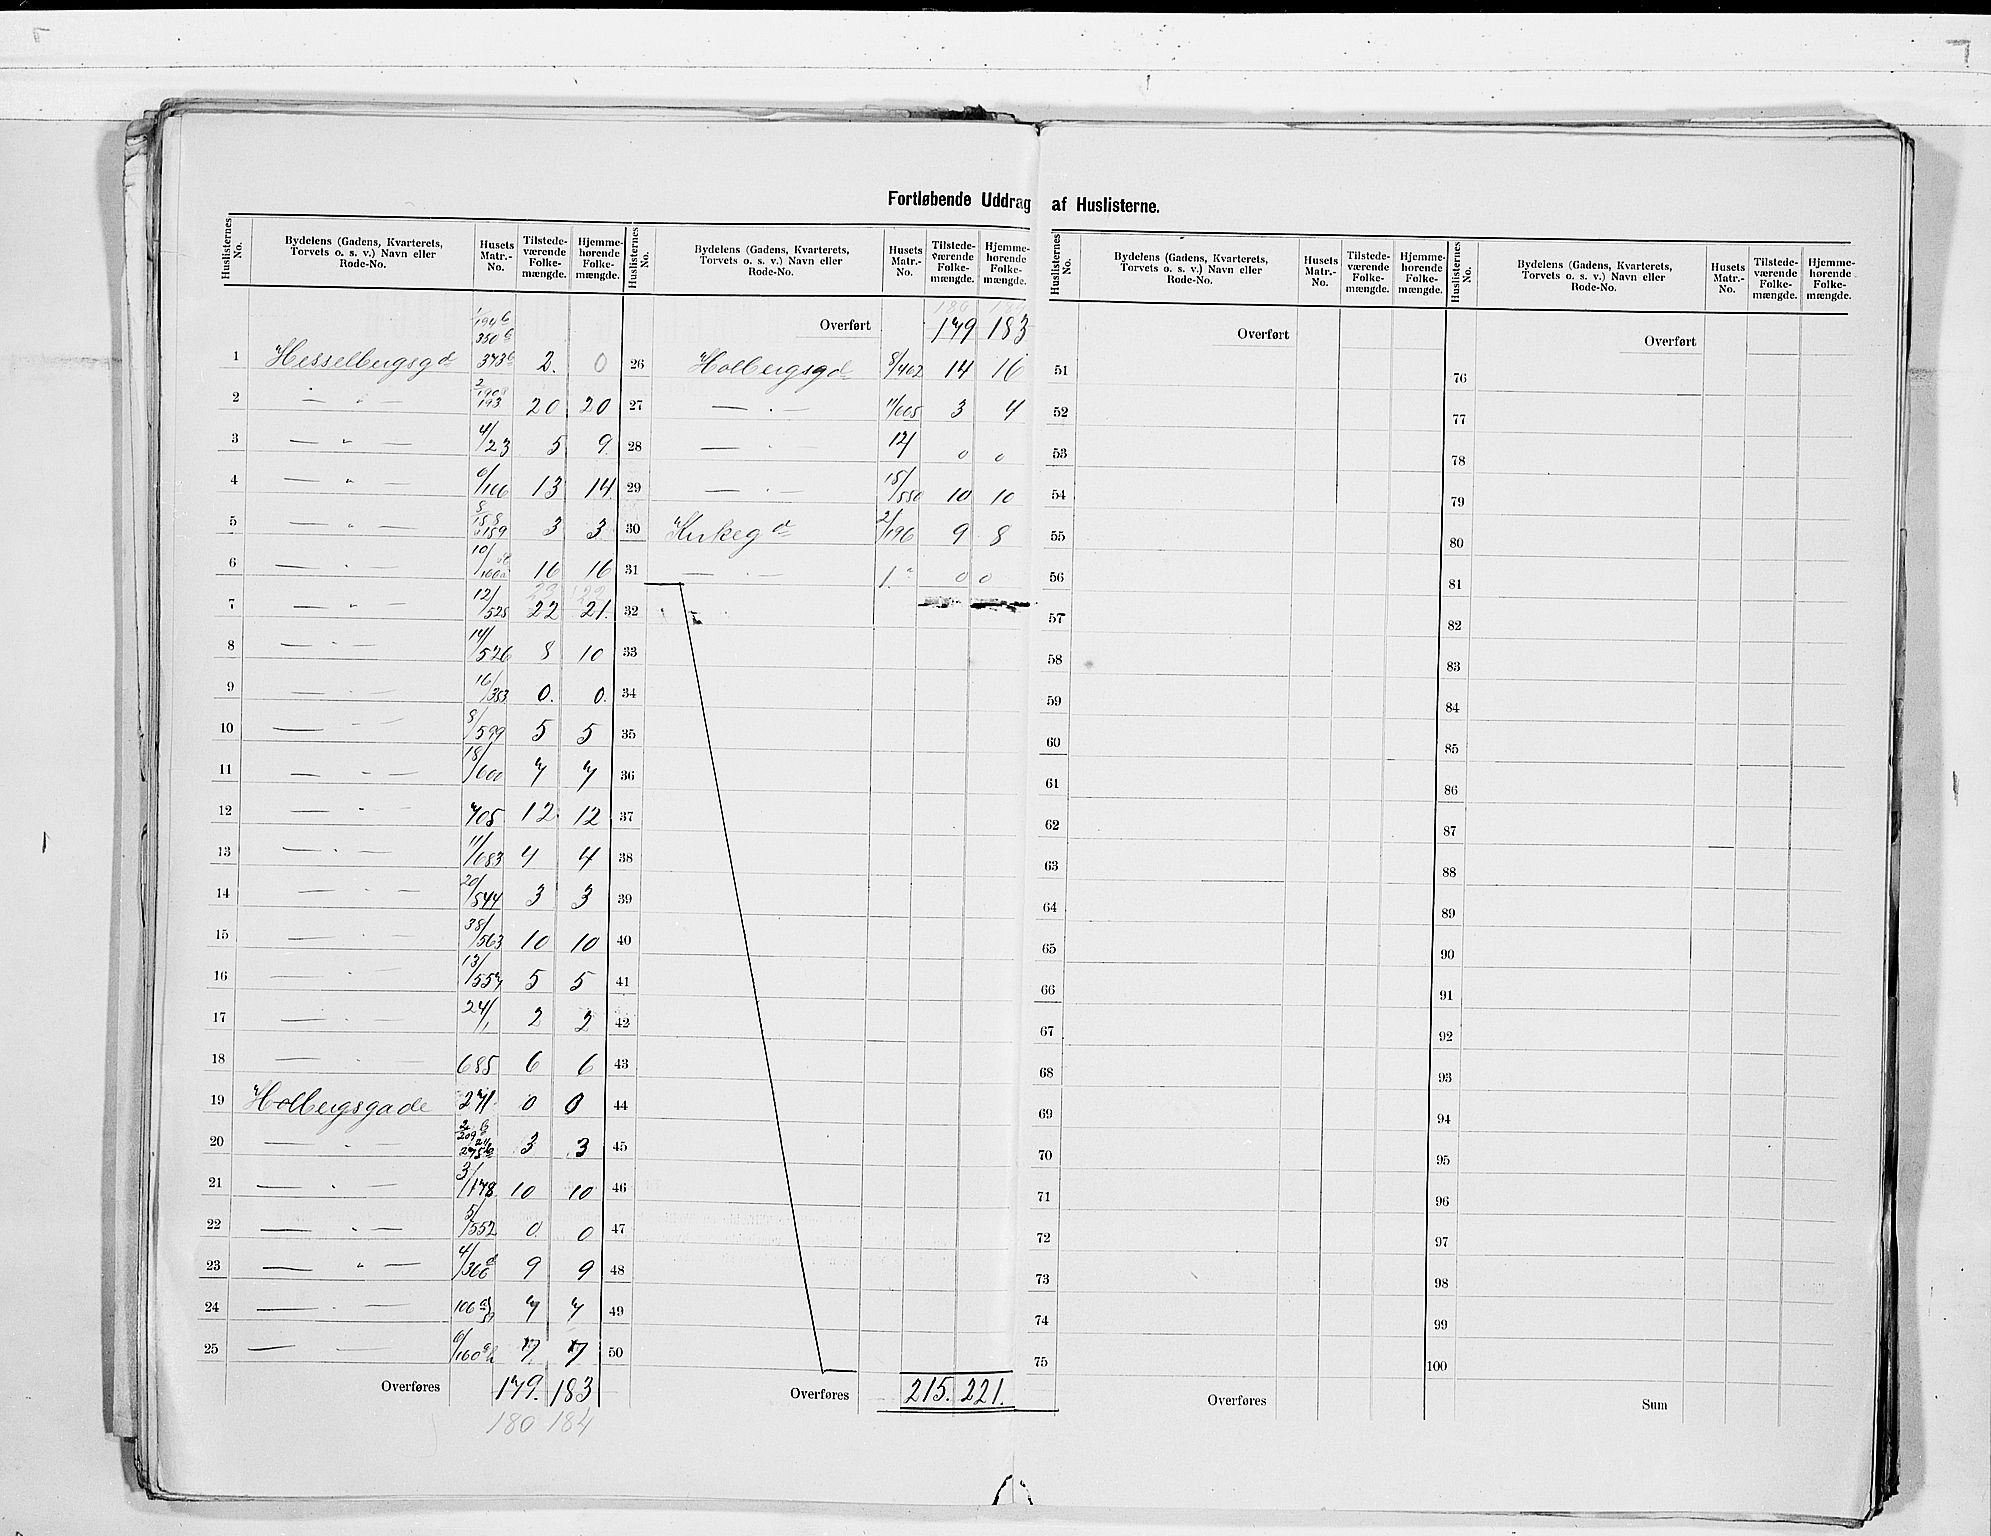 Fortløbende Uddrag af Huslisterne.
Huslisternes No. Bydelens (Gadens, Kvarterets, Torvets o. s. v.) Navn eller Rode-No. Husets Matr.-No. Tilstede-værende Folke-mængde. Hjemme-hørende Folke-mængde.
1 Hesselbergsgd 373b 2. 0
2 — " — 193 20 20
3 — " — 4/23 5 9
4 — " — 6/166 13 14
5 — " — 8 158 159 3 3
6 — " — 10/160a 16 16
7 — " — 12/528 22 21.
8 — " — 14/526 8 10
9 — " — 16/353 0. 0.
10 — " — 8/599 5 5
11 — " — 18/600 7 7
12 — " — 705 12 12
13 — " — 11/683 4 4
14 — " — 20/544 3 3
15 — " — 38/563 10 10
16 — " — 13/557 5 5
17 — " — 24/1 2 2
18 — " — 685 6 6
19 Holbergsgade 271 0 0
20 — " — 3 3
21 — " — 3/178 10 10
22 — " — 5/552 0 0
23 — " — 4/366d 9 9
24 — " — 106 7 7
25 — — 6/160 7 7
Overføres 179. 183
180 184
Huslisternes No. Bydelens (Gadens, Kvarterets, Torvets o. s. v.) Navn eller Rode-No. Husets Matr.-No. Tilstede-værende Folke-mængde. Hjemme-hørende Folke-mængde.
Overført 179 183
26 Holbergsgd 8/402 14 16
27 — " — 11/665 3 4
28 — " — 12/ 0 0
29 — " — 15/550 10 10
30 Kirkegd 2/196 9 8
31 — " — 1.a 0 0
32
33
34
35
36
37
38
39
40
41
42
43
44
45
46
47
48
49
50
Overføres 215. 221.
Huslisternes No. Bydelens (Gadens, Kvarterets, Torvets o. s. v.) Navn eller Rode-No. Husets Matr.-No. Tilstede-værende Folke-mængde. Hjemme-hørende Folke-mængde.
Overført
51
52
53
54
55
56
57
58
59
60
61
62
63
64
65
66
67
68
69
70
71
72
73
74
75
Overføres
Huslisternes No. Bydelens (Gadens, Kvarterets, Torvets o. s. v.) Navn eller Rode-No. Husets Matr.-No. Tilstede-værende Folke-mængde. Hjemme-hørende Folke-mængde.
Overført
76
77
78
79
80
81
82
83
84
85
86
87
88
89
90
91
92
93
94
95
96
97
98
99
100
Sum